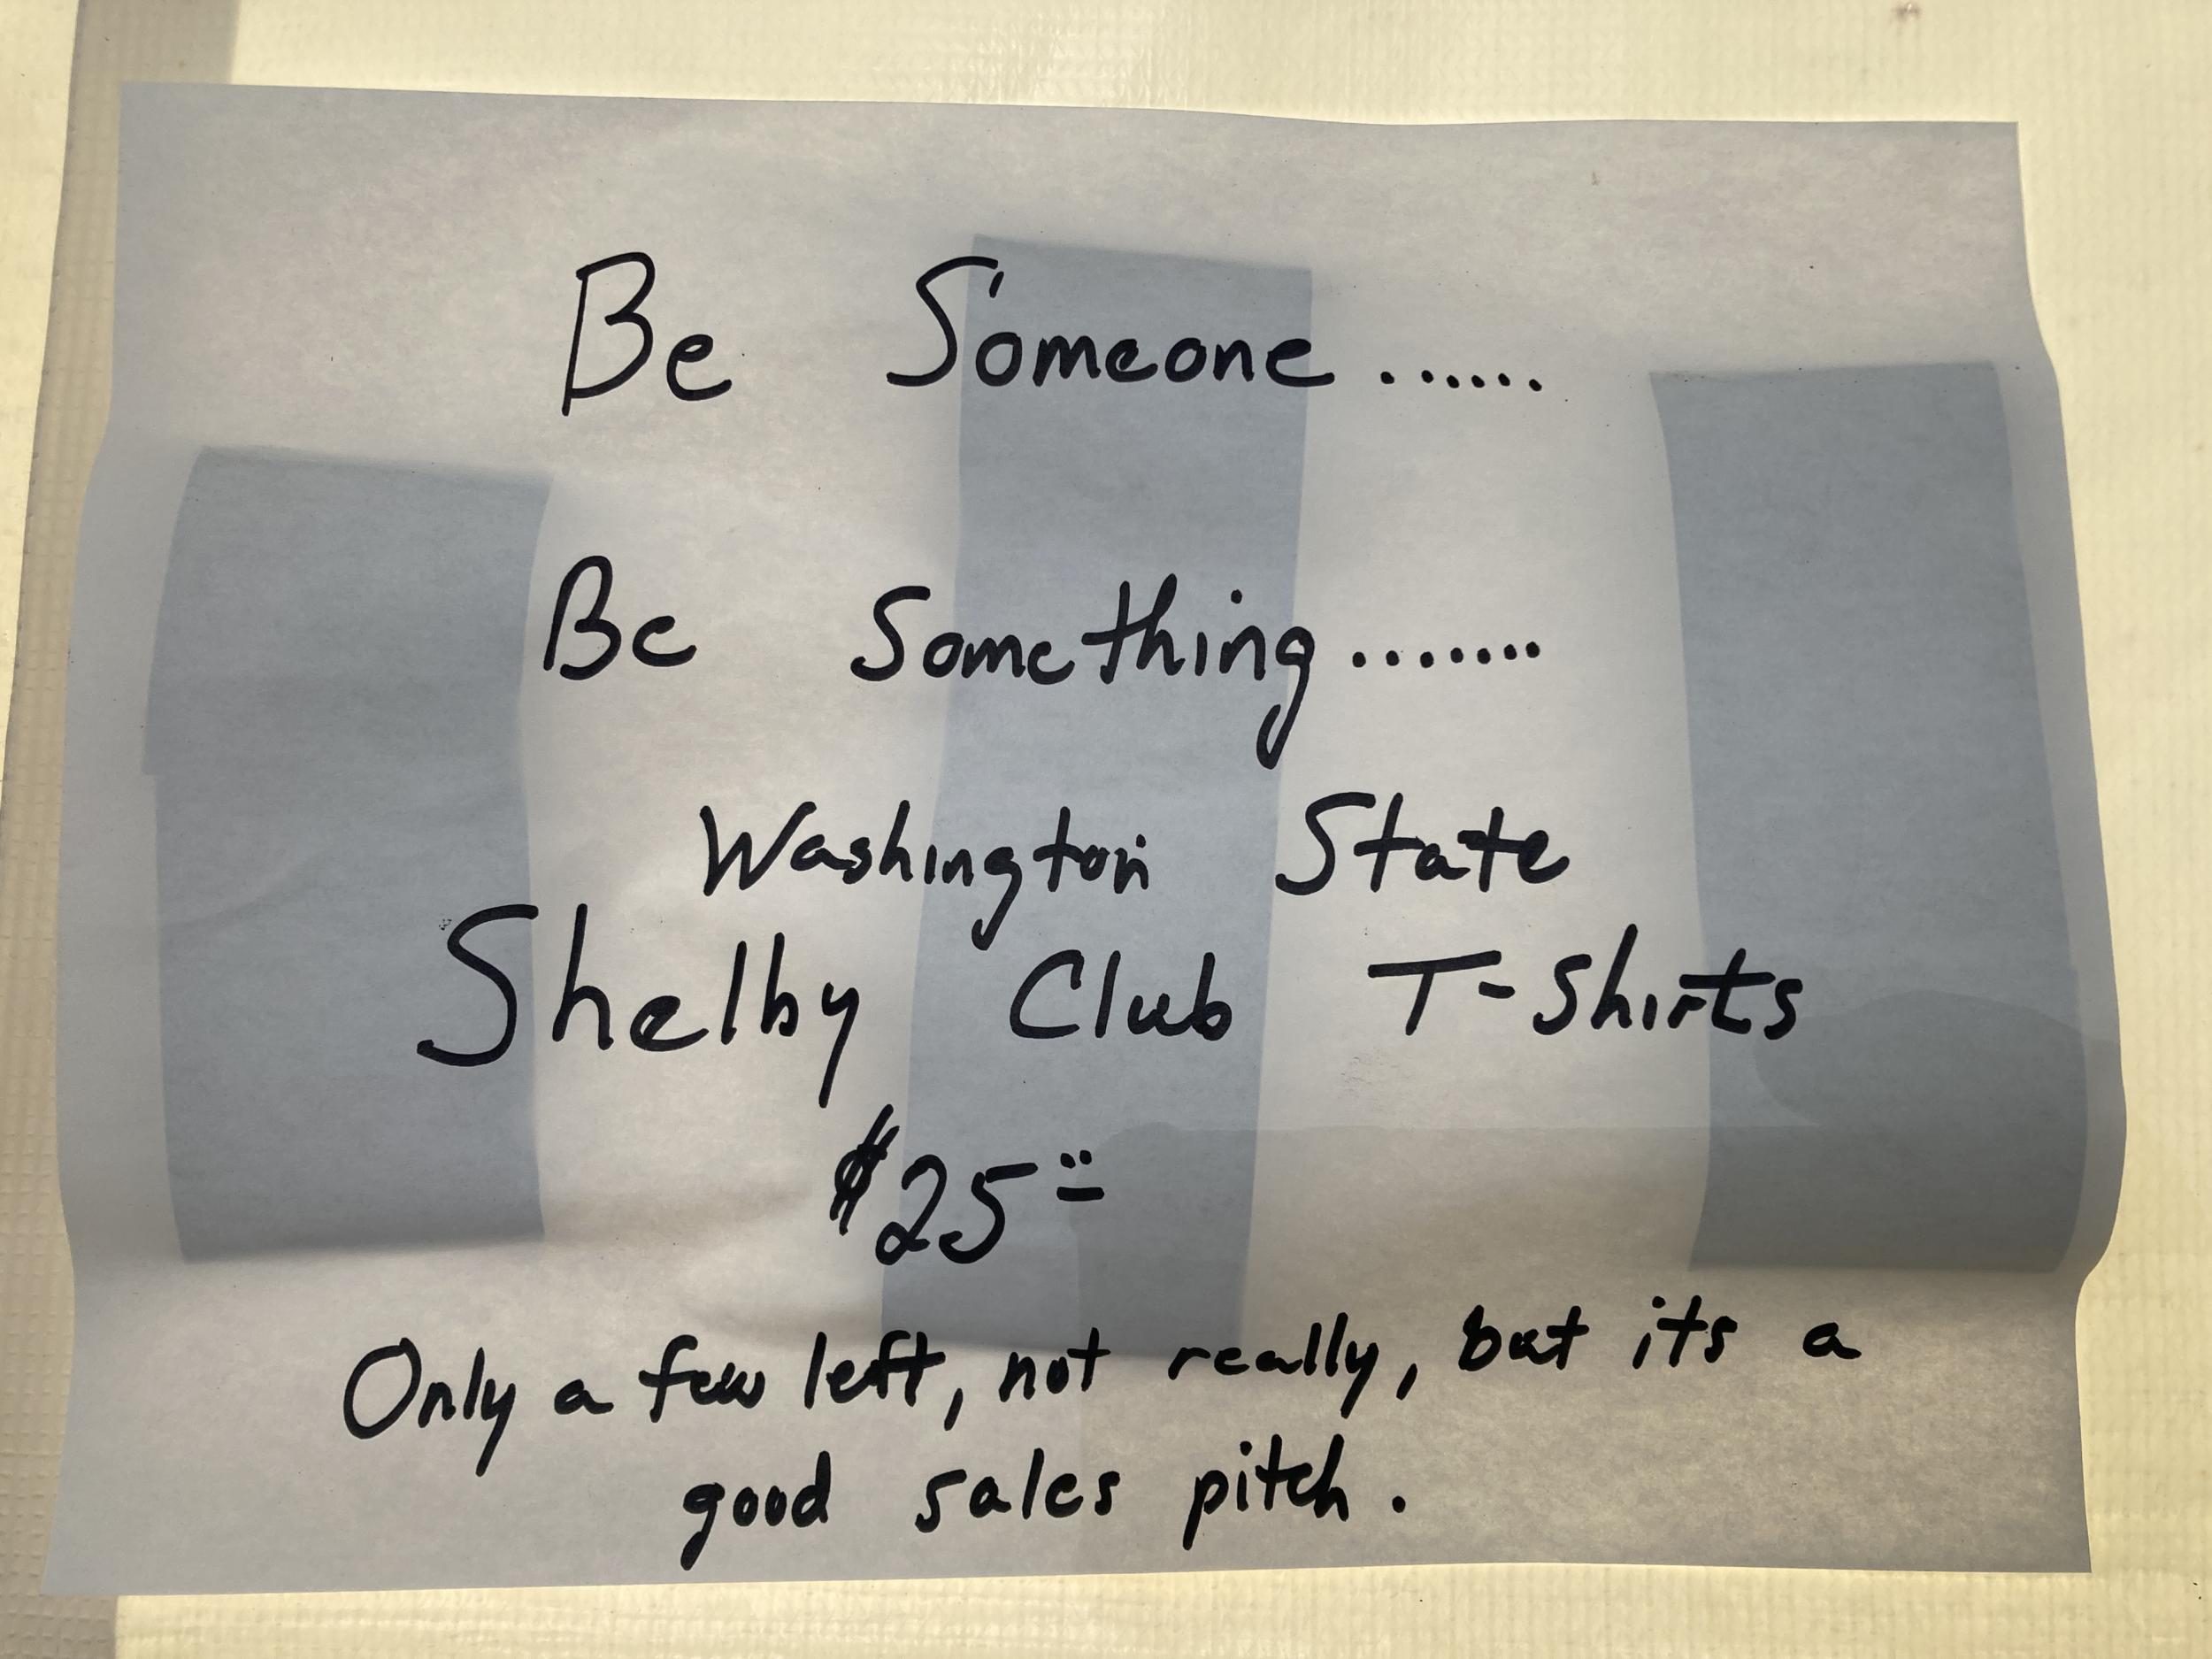 Be Someone ......
Be Something .......
Washington State
Shelby Club T-Shirts
$25
Only a few left, not really, but its a
good sales pitch.